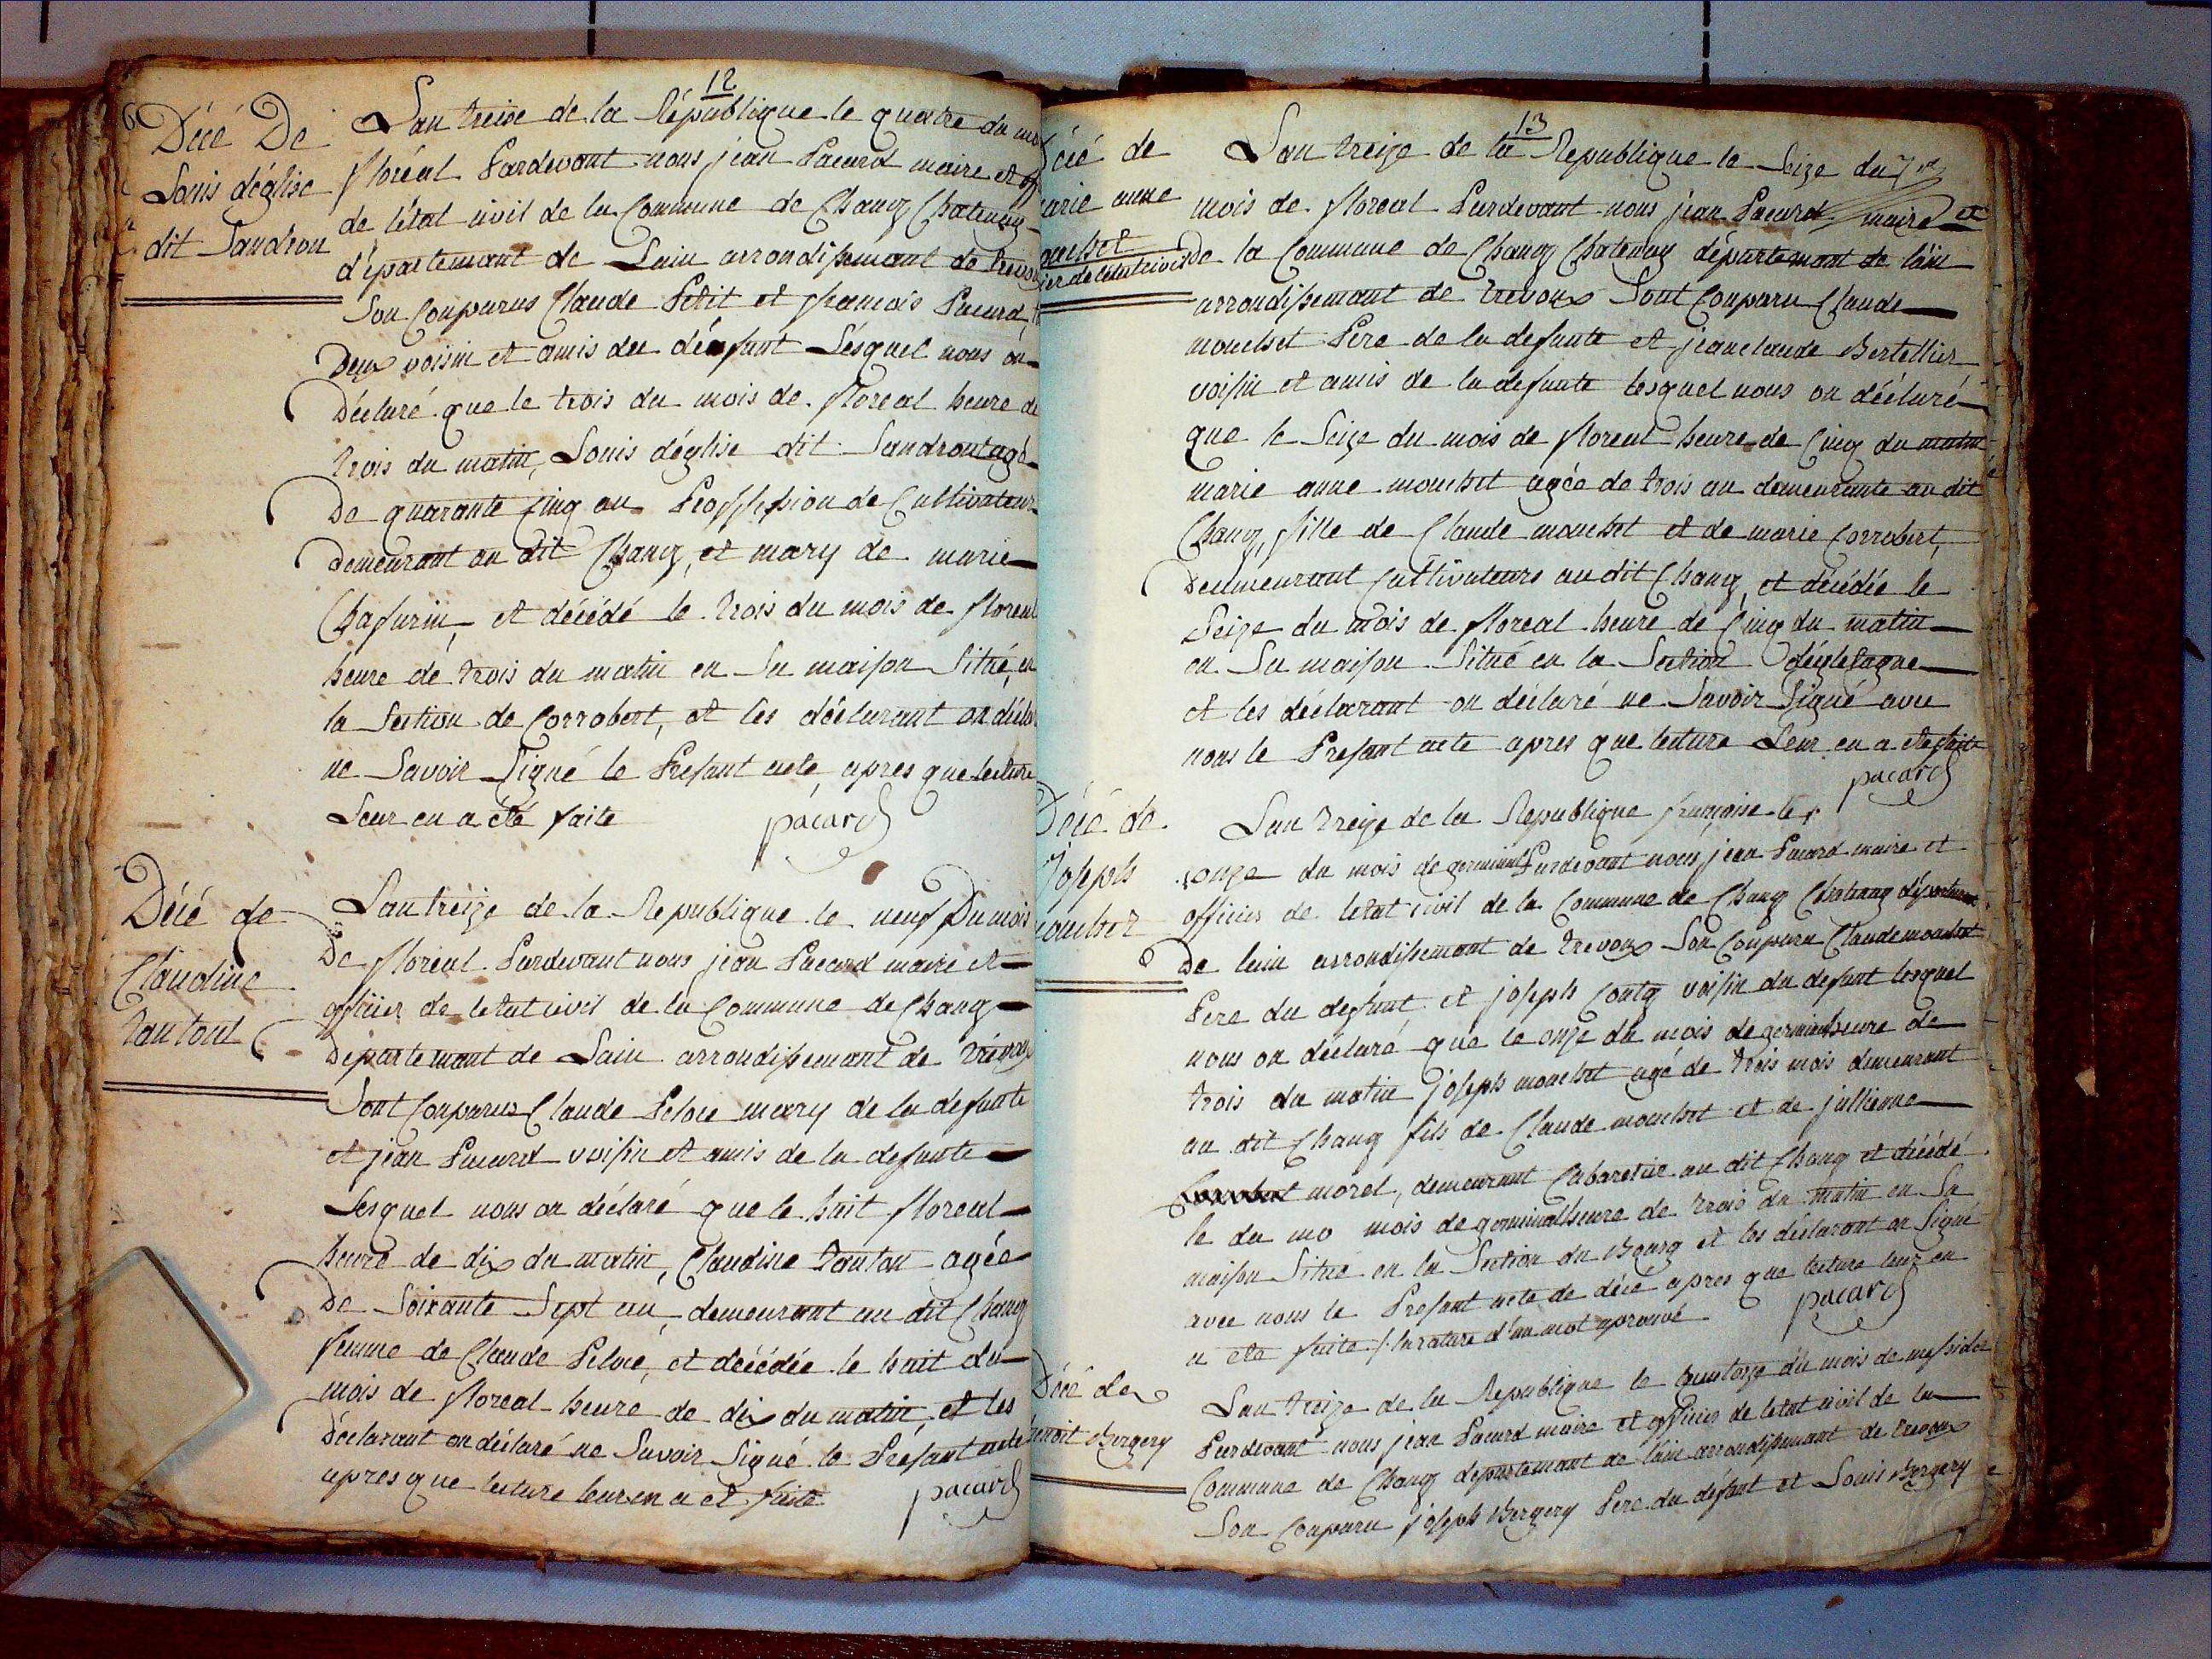 12
Décé De
Louis déglise
dit Landron
L'an treize de la République le quatre du
floréal Pardevant nous jean Pacard maire et
de l'état civil de la Commune de Chaney Chatenay
département de Lain arrondissemant de Trevoux
Son Comparus Claude Petit et franςois Pacard
Deux voisin et amis du défunt Lésquel nous on
Déclaré que le trois du mois de floreal heure de
trois du matin, Louis déglise dit Landront agé
De quarante Cinq an Proffession de Cultivateur
Demeurant au dit Chaney, et mary de marie
Chafurin, et décédé le trois du mois de floreal
heure de trois du matin en Sa maison Situé, en
la Section de Corrobert, et les déclarant on
ne Savoir Signé le Présant acte, apres que lecture
Leur en a été faite
pacard
Décé de
Claudine
tantout
L'an treize de la Republique le neuf Du mois
De floréal Pardevant nous jean Pacard maire et
officier de letat civil de la Commune de Chaney
Département de Lain arrondissemant de Trévoux
Sont Comparus Claude Peloce mary de la defunte
et jean Pacard voisin et amis de la defunte
Lesquel nous on déclaré que le huit floreal
heure de dix du matin, Claudine Tanton agée
De Soixante Sept an, demeurant au dit Chaney
femme de Claude Peloce, et décédée le huit du
mois de floreal heure de dix du matin, et les
Déclarant on déclaré ne Savoir Signé le Présant acte
apres que lecture leur en a et faite
pacard
13
de
marie anne
L'an treize de la Republique le Seize du
mois de floreal Pardevant nous jean Pacard maire et
De la Commune de Chaney Chatenay département de lain
arrondissemant de trevoux Sont Comparu Claude
mouchet Pere de la defunte et jeanclaude Bertellier
voisin et amis de la defunte lesquel nous on déclaré
que le Seize du mois de floreal heure de Cinq du matin
marie anne mouchet agée de trois an demeurante au dit
Chaney, fille de Claude mouchet et de marie Corrobert,
Demeurant Cultivateurs au dit Chaney, et décédée le
Seize du mois de floreal heure de Cinq du matin
en Sa maison Situé en la Section
et les déclarant on déclaré ne Savoir Signé avec
nous le Présant acte apres que lecture Leur en a ete faite
pacard
Décé de
joseph
mouchet
L'an treize de la Republique franςaise le
onze du mois de germinal Pardevant nous jean Pacard maire et
officier de letat civil de la Commune de Chaney Chatenay département
De lain arrondissemant de trevoux Son Comparu Claude mouchet
Pere du defunt et joseph Conty voisin du defunt lesquel
nous on déclaré que le onze du mois de germinal heure de
trois du matin joseph mouchet agé de trois mois demeurant
au dit Chaney fils de Claude mouchet et de jullienne
morel, demeurant Cabaretier au dit Chaney et décédé
le du mo mois de germinal heure de trois du matin en Sa
maison Situé en la Section du Bourg et les déclarant on Signé
avec nous le Présant acte de décé apres que lecture leur en
a ete faite /. la rature d'un mot aprouvé
pacard
Décé de
benoit Bergery
L'an treize de la Republique le quatorze du mois de messidor
Pardevant nous jean Pacard maire et officier de letat civil de la
Commune de Chaney département de lain arrondissemant de trevoux
Son Comparu joseph Bergery Pere du défunt et Louis Bergery